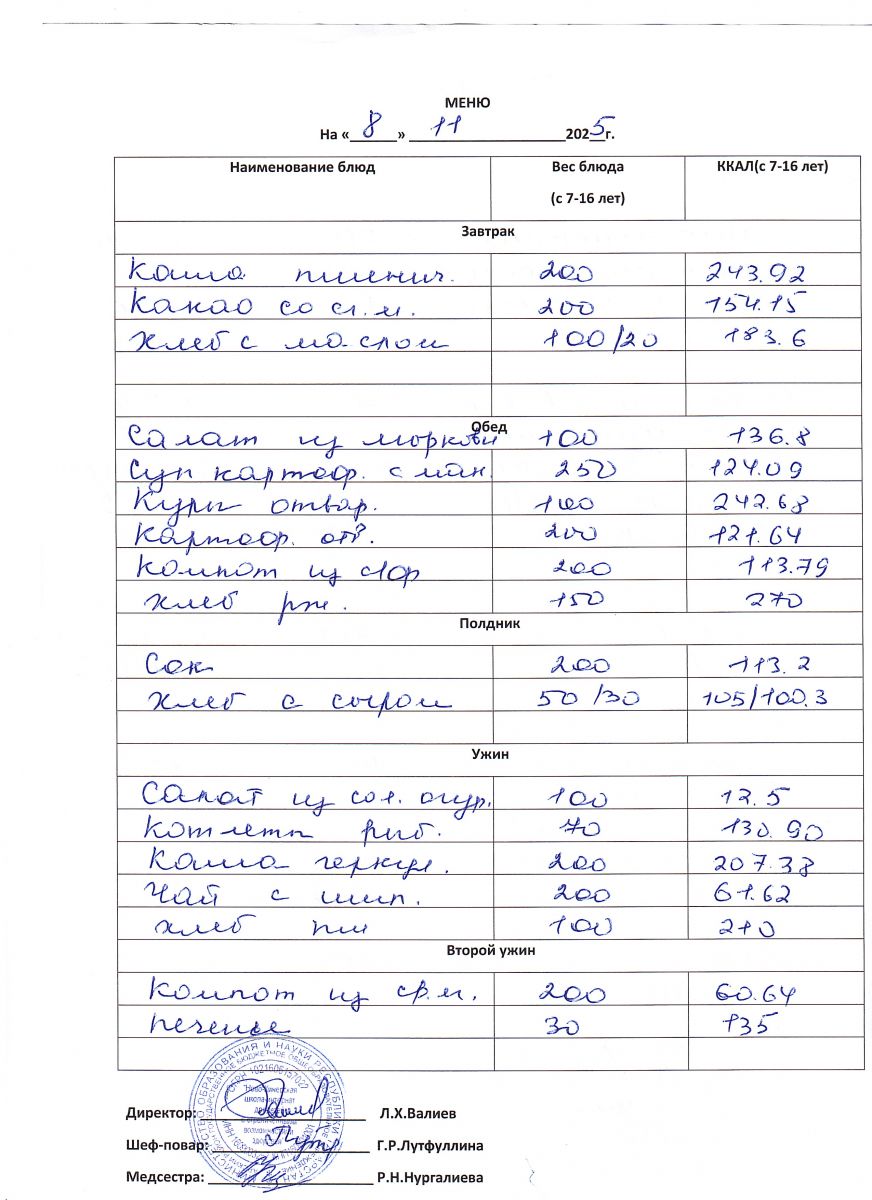 МЕНЮ
На « 8 » 11 2025г.
Наименование блюд Вес блюда (с 7-16 лет) ККАЛ(с 7-16 лет)
Завтрак
Каша пшенич. 200 243.92
Какао со сг.м. 200 154.15
Хлеб с маслом 100/20 183.6
Обед
Салат из моркови 100 136.8
Суп картоф. с мак. 250 124.09
Куры отвар. 100 242.68
Картоф. отв. 200 121.64
Компот из с/ф 200 113.79
Хлеб рж. 150 270
Полдник
Сок 200 113.2
Хлеб с сыром 50/30 105/100.3
Ужин
Салат из сол. огур. 100 12.5
Котлеты рыб. 70 130.90
Каша геркул. 200 207.38
Чай с шип. 200 61.62
Хлеб пш 100 210
Второй ужин
Компот из св.м. 200 60.64
Печенье 30 135
Директор: Л.Х.Валиев
Шеф-повар: Г.Р.Лутфуллина
Медсестра: Р.Н.Нургалиева